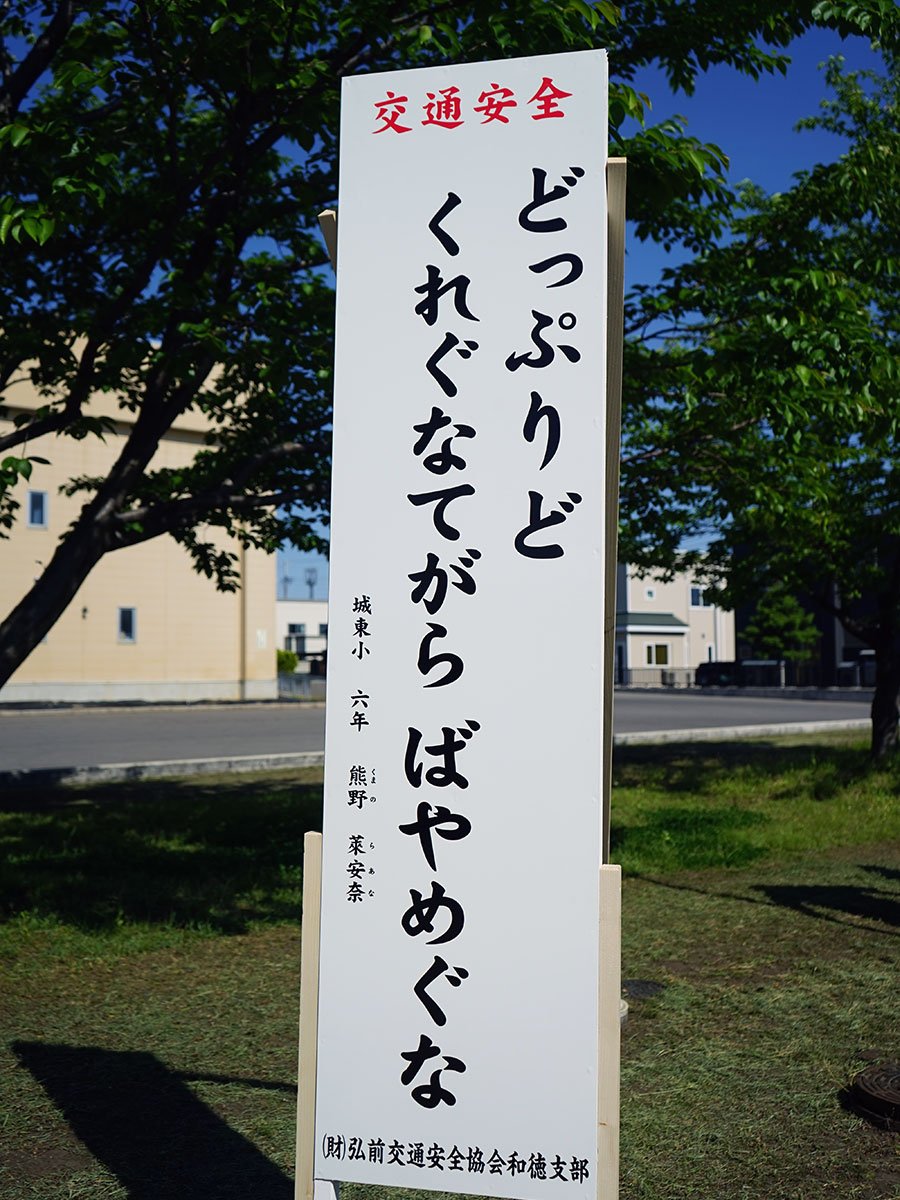 交通安全
どっぷりど
くれぐなてがら ばやめぐな
城東小 六年 熊野 萊安奈
くまの らあな
(財)弘前交通安全協会和徳支部